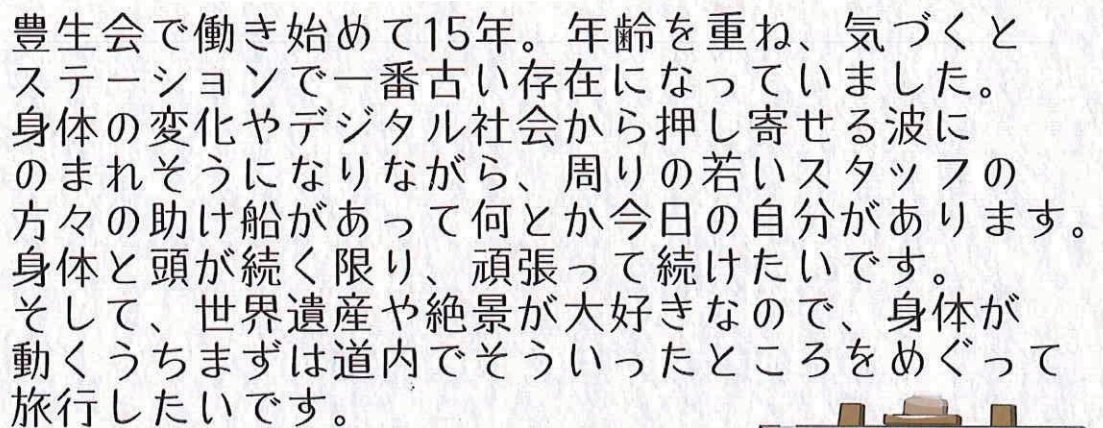 豊生会で働き始めて15年。年齢を重ね、気づくと
ステーションで一番古い存在になっていました。
身体の変化やデジタル社会から押し寄せる波に
のまれそうになりながら、周りの若いスタッフの
方々の助け船があって何とか今日の自分があります。
身体と頭が続く限り、頑張って続けたいです。
そして、世界遺産や絶景が大好きなので、身体が
動くうちまずは道内でそういったところをめぐって
旅行したいです。